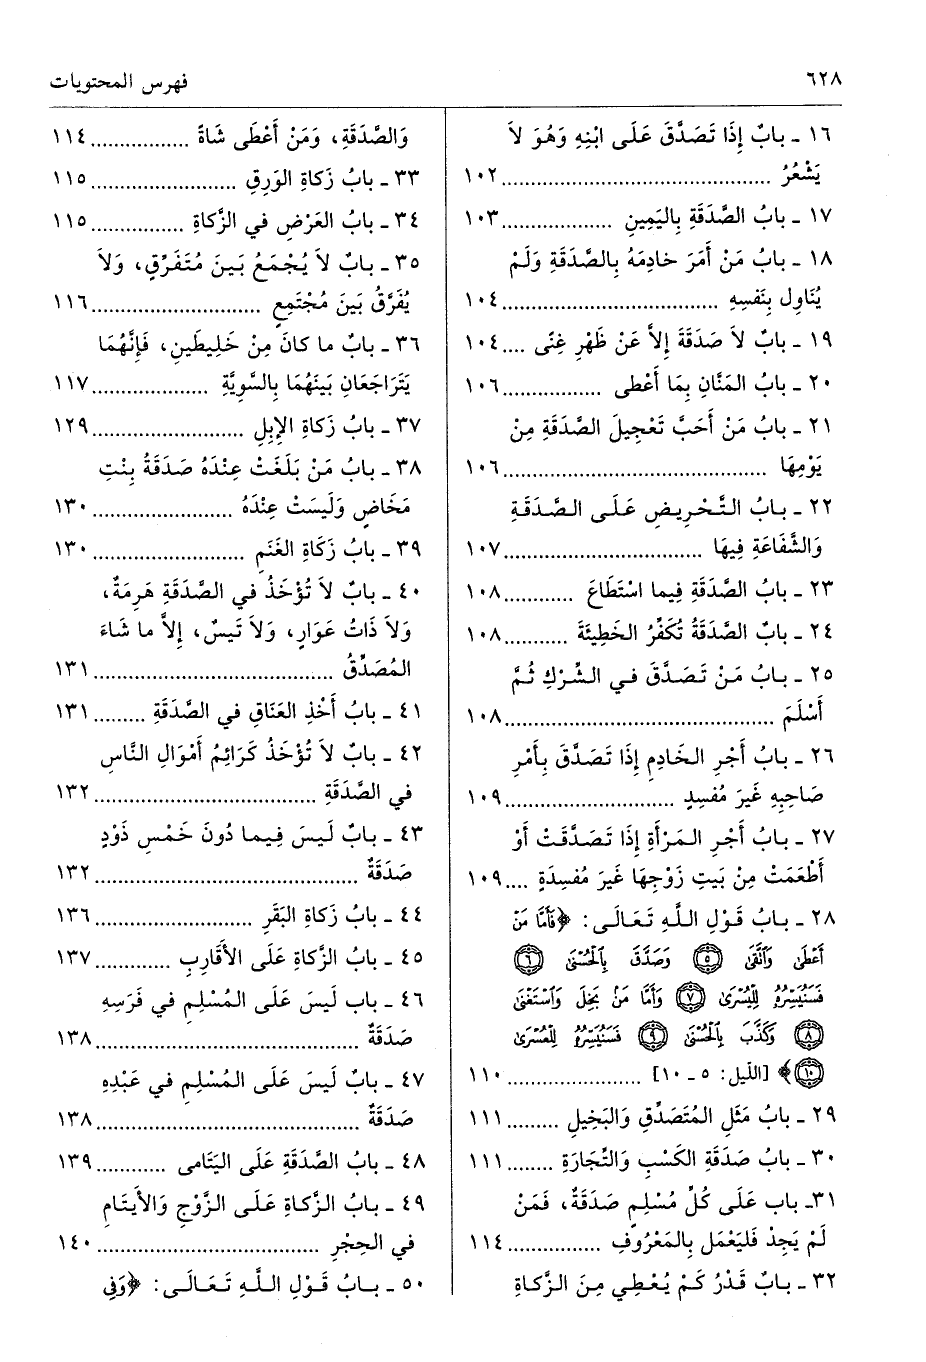 ٦٢٨
فهرس المحتويات
١٦ ـ بابٌ إِذَا تَصَدَّقَ عَلَى ابْنِهِ وَهُوَ لاَ
يَشْعُرُ ........................................ ١٠٢
١٧ ـ بابُ الصَّدَقَةِ بِاليَمِينِ ................ ١٠٣
١٨ ـ بابُ مَنْ أَمَرَ خادِمَهُ بِالصَّدَقَةِ وَلَمْ
يُنَاوِل بِنَفْسِهِ ................................ ١٠٤
١٩ ـ بابٌ لاَ صَدَقَةَ إِلاَّ عَنْ ظَهْرِ غِنًى .... ١٠٤
٢٠ ـ بابُ المَنَّانِ بِمَا أَعْطى ................ ١٠٦
٢١ ـ بابُ مَنْ أَحَبَّ تَعْجِيلَ الصَّدَقَةِ مِنْ
يَوْمِهَا ....................................... ١٠٦
٢٢ ـ بابُ التَّحْرِيضِ عَلَى الصَّدَقَةِ
وَالشَّفَاعَةِ فِيهَا .............................. ١٠٧
٢٣ ـ بابُ الصَّدَقَةِ فِيما اسْتَطَاعَ ........... ١٠٨
٢٤ ـ بابٌ الصَّدَقَةُ تُكَفِّرُ الخَطِيئَةَ .......... ١٠٨
٢٥ ـ بابُ مَنْ تَصَدَّقَ في الشِّرْكِ ثُمَّ
أَسْلَمَ ........................................ ١٠٨
٢٦ ـ بابُ أَجْرِ الخَادِمِ إِذَا تَصَدَّقَ بِأَمْرِ
صَاحِبِهِ غَيرَ مُفسِدٍ ......................... ١٠٩
٢٧ ـ بابُ أَجْرِ المَرْأَةِ إِذَا تَصَدَّقَتْ أَوْ
أَطْعَمَتْ مِنْ بَيتِ زَوْجِهَا غَيرَ مُفسِدَةٍ .... ١٠٩
٢٨ ـ بابُ قَوْلِ اللَّهِ تَعَالَى: ﴿فَأَمَّا مَنْ
أَعْطَى وَاتَّقَى ٥ وَصَدَّقَ بِالْحُسْنَى ٦
فَسَنُيَسِّرُهُ لِلْيُسْرَى ٧ وَأَمَّا مَنْ بَخِلَ وَاسْتَغْنَى
٨ وَكَذَّبَ بِالْحُسْنَى ٩ فَسَنُيَسِّرُهُ لِلْعُسْرَى
١٠﴾ [الليل: ٥ ـ ١٠] .................... ١١٠
٢٩ ـ بابُ مَثَلِ المُتَصَدِّقِ وَالبَخِيلِ ......... ١١١
٣٠ ـ بابُ صَدَقَةِ الكَسْبِ وَالتِّجَارَةِ ........ ١١١
٣١ـ باب عَلَى كُلِّ مُسْلِمٍ صَدَقَةٌ، فَمَنْ
لَمْ يَجِدْ فَليَعْمَل بِالمَعْرُوفِ .............. ١١٤
٣٢ ـ بابٌ قَدْرُ كَمْ يُعْطِي مِنَ الزَّكاةِ
وَالصَّدَقَةِ، وَمَنْ أَعْطَى شَاةً ................ ١١٤
٣٣ ـ بابُ زَكاةِ الوَرِقِ ....................... ١١٥
٣٤ ـ بابُ العَرْضِ في الزَّكاةِ ................ ١١٥
٣٥ ـ بابٌ لاَ يُجْمَعُ بَينَ مُتَفَرِّقٍ، وَلاَ
يُفَرَّقُ بَينَ مُجْتَمِعٍ .......................... ١١٦
٣٦ ـ بابٌ ما كانَ مِنْ خَلِيطَينِ، فَإِنَّهُمَا
يَتَرَاجَعَانِ بَينَهُمَا بِالسَّوِيَّةِ ................... ١١٧
٣٧ ـ بابُ زَكاةِ الإِبِلِ ........................ ١٢٩
٣٨ ـ بابُ مَنْ بَلَغَتْ عِنْدَهُ صَدَقَةُ بِنْتِ
مَخَاضٍ وَلَيسَتْ عِنْدَهُ ...................... ١٣٠
٣٩ ـ بابُ زَكَاةِ الغَنَمِ ........................ ١٣٠
٤٠ ـ بابٌ لاَ تُؤْخَذُ في الصَّدَقَةِ هَرِمَةٌ،
وَلاَ ذَاتُ عَوَارٍ، وَلاَ تَيسٌ، إِلاَّ ما شَاءَ
المُصَدِّقُ ..................................... ١٣١
٤١ ـ بابُ أَخْذِ العَنَاقِ في الصَّدَقَةِ ......... ١٣١
٤٢ ـ بابٌ لاَ تُؤْخَذُ كَرَائِمُ أَمْوَالِ النَّاسِ
في الصَّدَقَةِ .................................. ١٣٢
٤٣ ـ بابٌ لَيسَ فِيما دُونَ خَمْسِ ذَوْدٍ
صَدَقَةٌ ......................................... ١٣٢
٤٤ ـ بابُ زَكاةِ البَقَرِ ......................... ١٣٦
٤٥ ـ بابُ الزَّكاةِ عَلَى الأَقَارِبِ ............ ١٣٧
٤٦ ـ باب لَيسَ عَلَى المُسْلِمِ في فَرَسِهِ
صَدَقَةٌ ......................................... ١٣٨
٤٧ ـ بابٌ لَيسَ عَلَى المُسْلِمِ في عَبْدِهِ
صَدَقَةٌ ......................................... ١٣٨
٤٨ ـ بابُ الصَّدَقَةِ عَلَى اليَتَامى ............ ١٣٩
٤٩ ـ بابُ الزَّكاةِ عَلَى الزَّوْجِ وَالأَيتَامِ
في الحِجْرِ ................................... ١٤٠
٥٠ ـ بابُ قَوْلِ اللَّهِ تَعَالَى: ﴿وَفِي